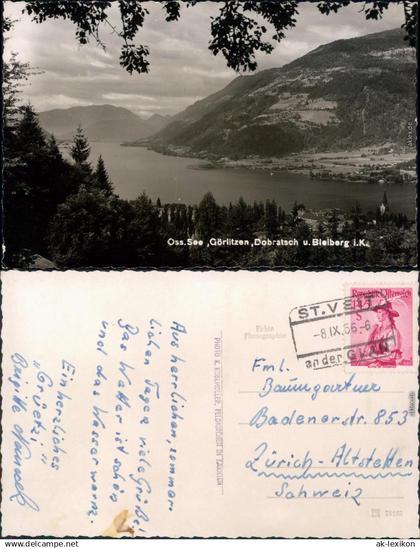 Oss. See, Görlitzen, Dobratsch u. Bleiberg i.K.
Aus herrlichen, sommer-
lichen Tagen viele Grüße!
Das Wetter ist schön
und das Wasser warm.
Ein herzliches
"Grüezi"
Brigitte
Echte
Photographie
ST. VEIT
-8.IX.56.-6
an der GLAN
Republik Österreich
Fml.
Baumgartner
Badenerstr. 853
Zürich-Altstetten
Schweiz
ak-lexikon
© ak-lexikon.de